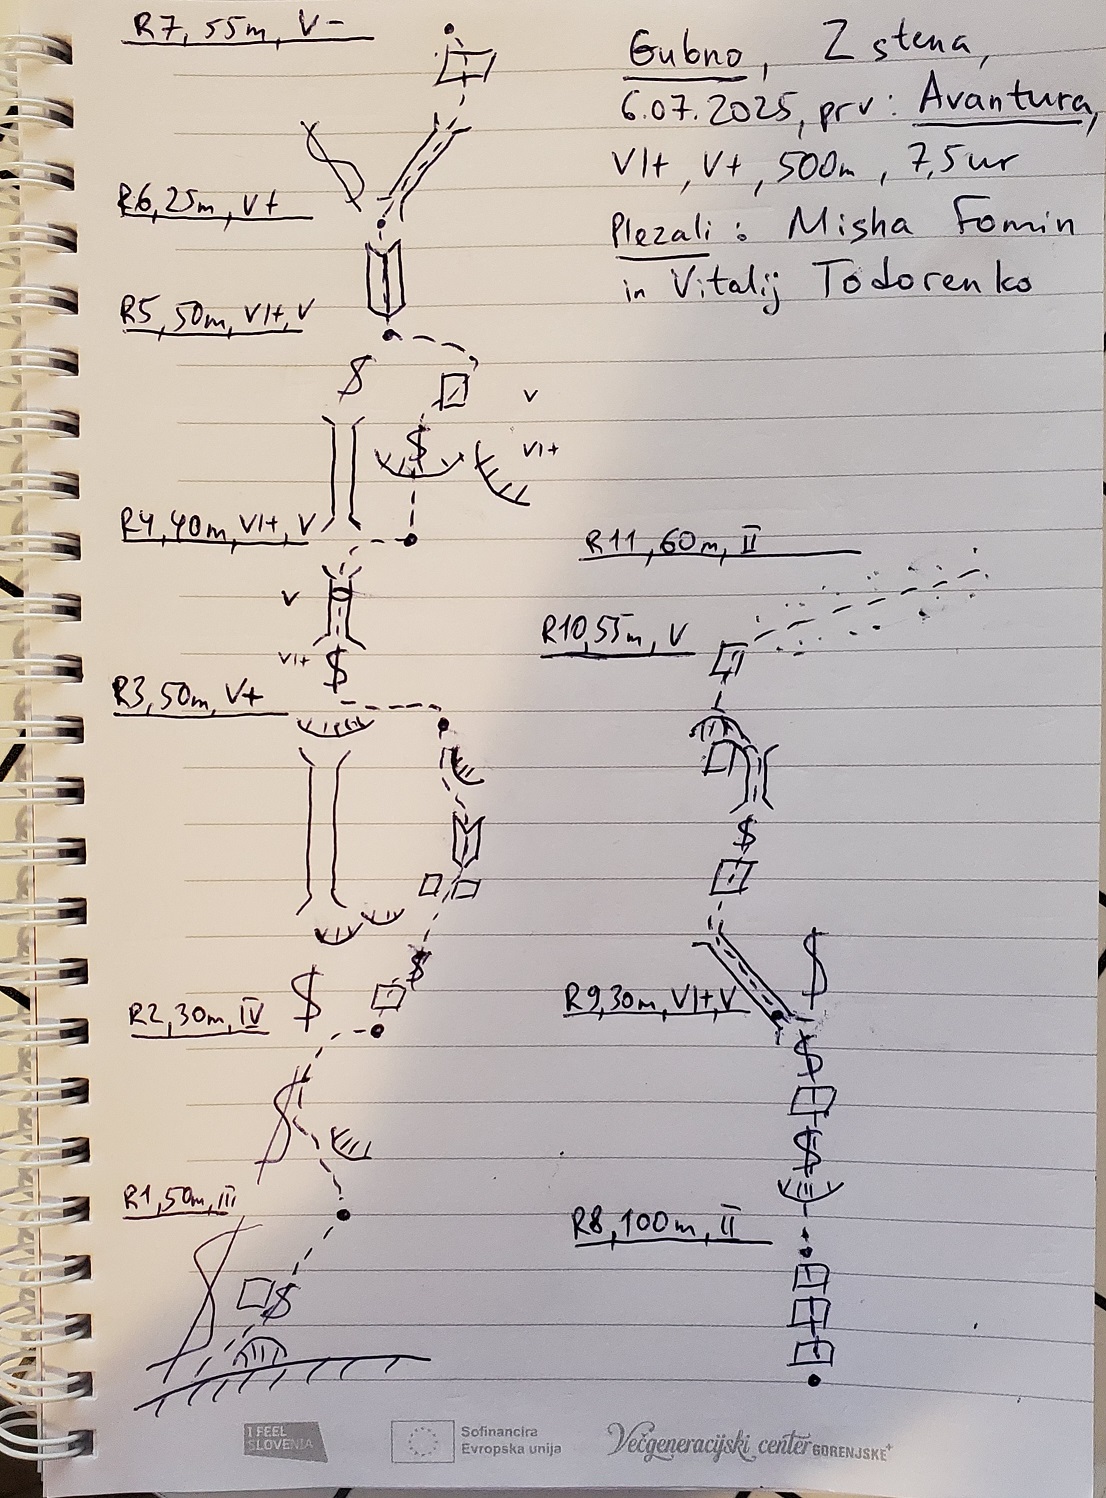 R7, 55m, V-
Gubno, Z stena,
6.07.2025, prv: Avantura,
VI+, V+, 500m, 7,5ur
Plezali: Misha Fomin
in Vitalij Todorenko
R6, 25m, V+
R5, 50m, VI+, V
V
VI+
R4, 40m, VI+, V
V
VI+
R3, 50m, V+
R2, 30m, IV
R1, 50m, III
R11, 60m, II
R10, 55m, V
R9, 30m, VI+, V
R8, 100m, II
I FEEL
SLOVENIA
Sofinancira
Evropska unija
Večgeneracijski center GORENJSKE+